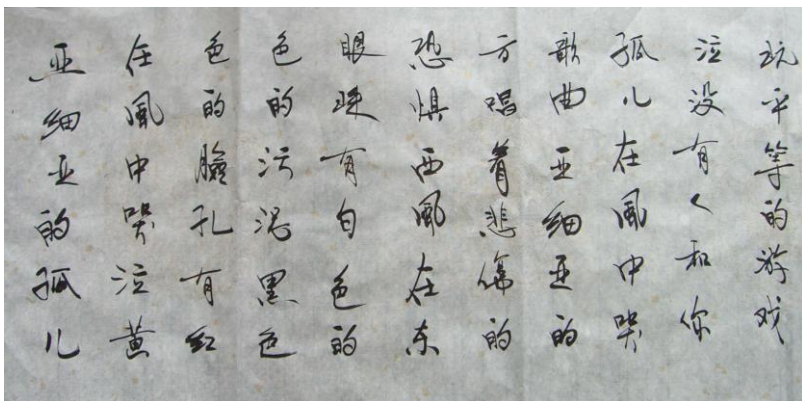 亚细亚的孤儿
在風中哭泣黄
色的臉孔有红
色的污泥黑色
眼睛有白色的
恐惧西風在东
方唱着悲傷的
歌曲亚细亚的
孤儿在風中哭
泣没有人和你
玩平等的游戏